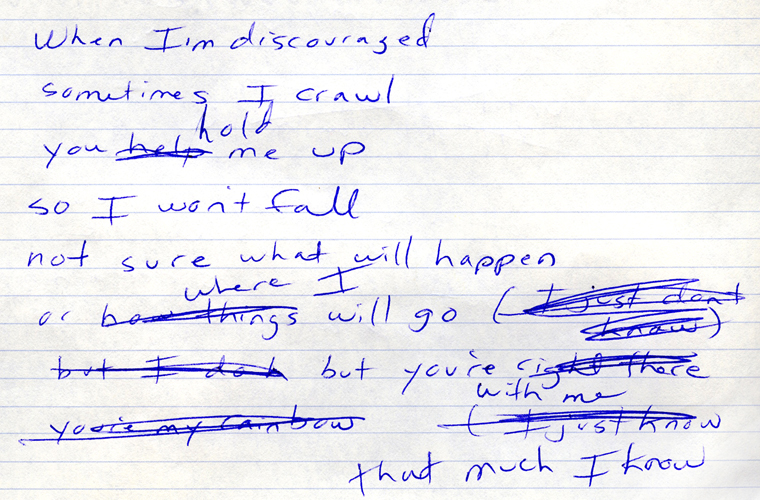 When I'm discouraged
sometimes I crawl
hold
you help me up
so I won't fall
not sure what will happen
where I
or how things will go (I just don't
know)
but I do k but you're right there
with me
you're my rainbow (I just know
that much I know